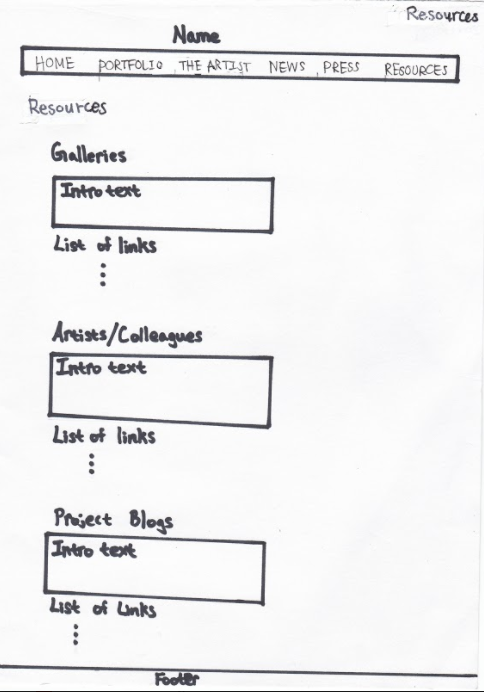 Resources
Name
HOME PORTFOLIO THE ARTIST NEWS PRESS RESOURCES
Resources
Galleries
Intro text
List of links
Artists/Colleagues
Intro text
List of links
Project Blogs
Intro text
List of Links
Footer